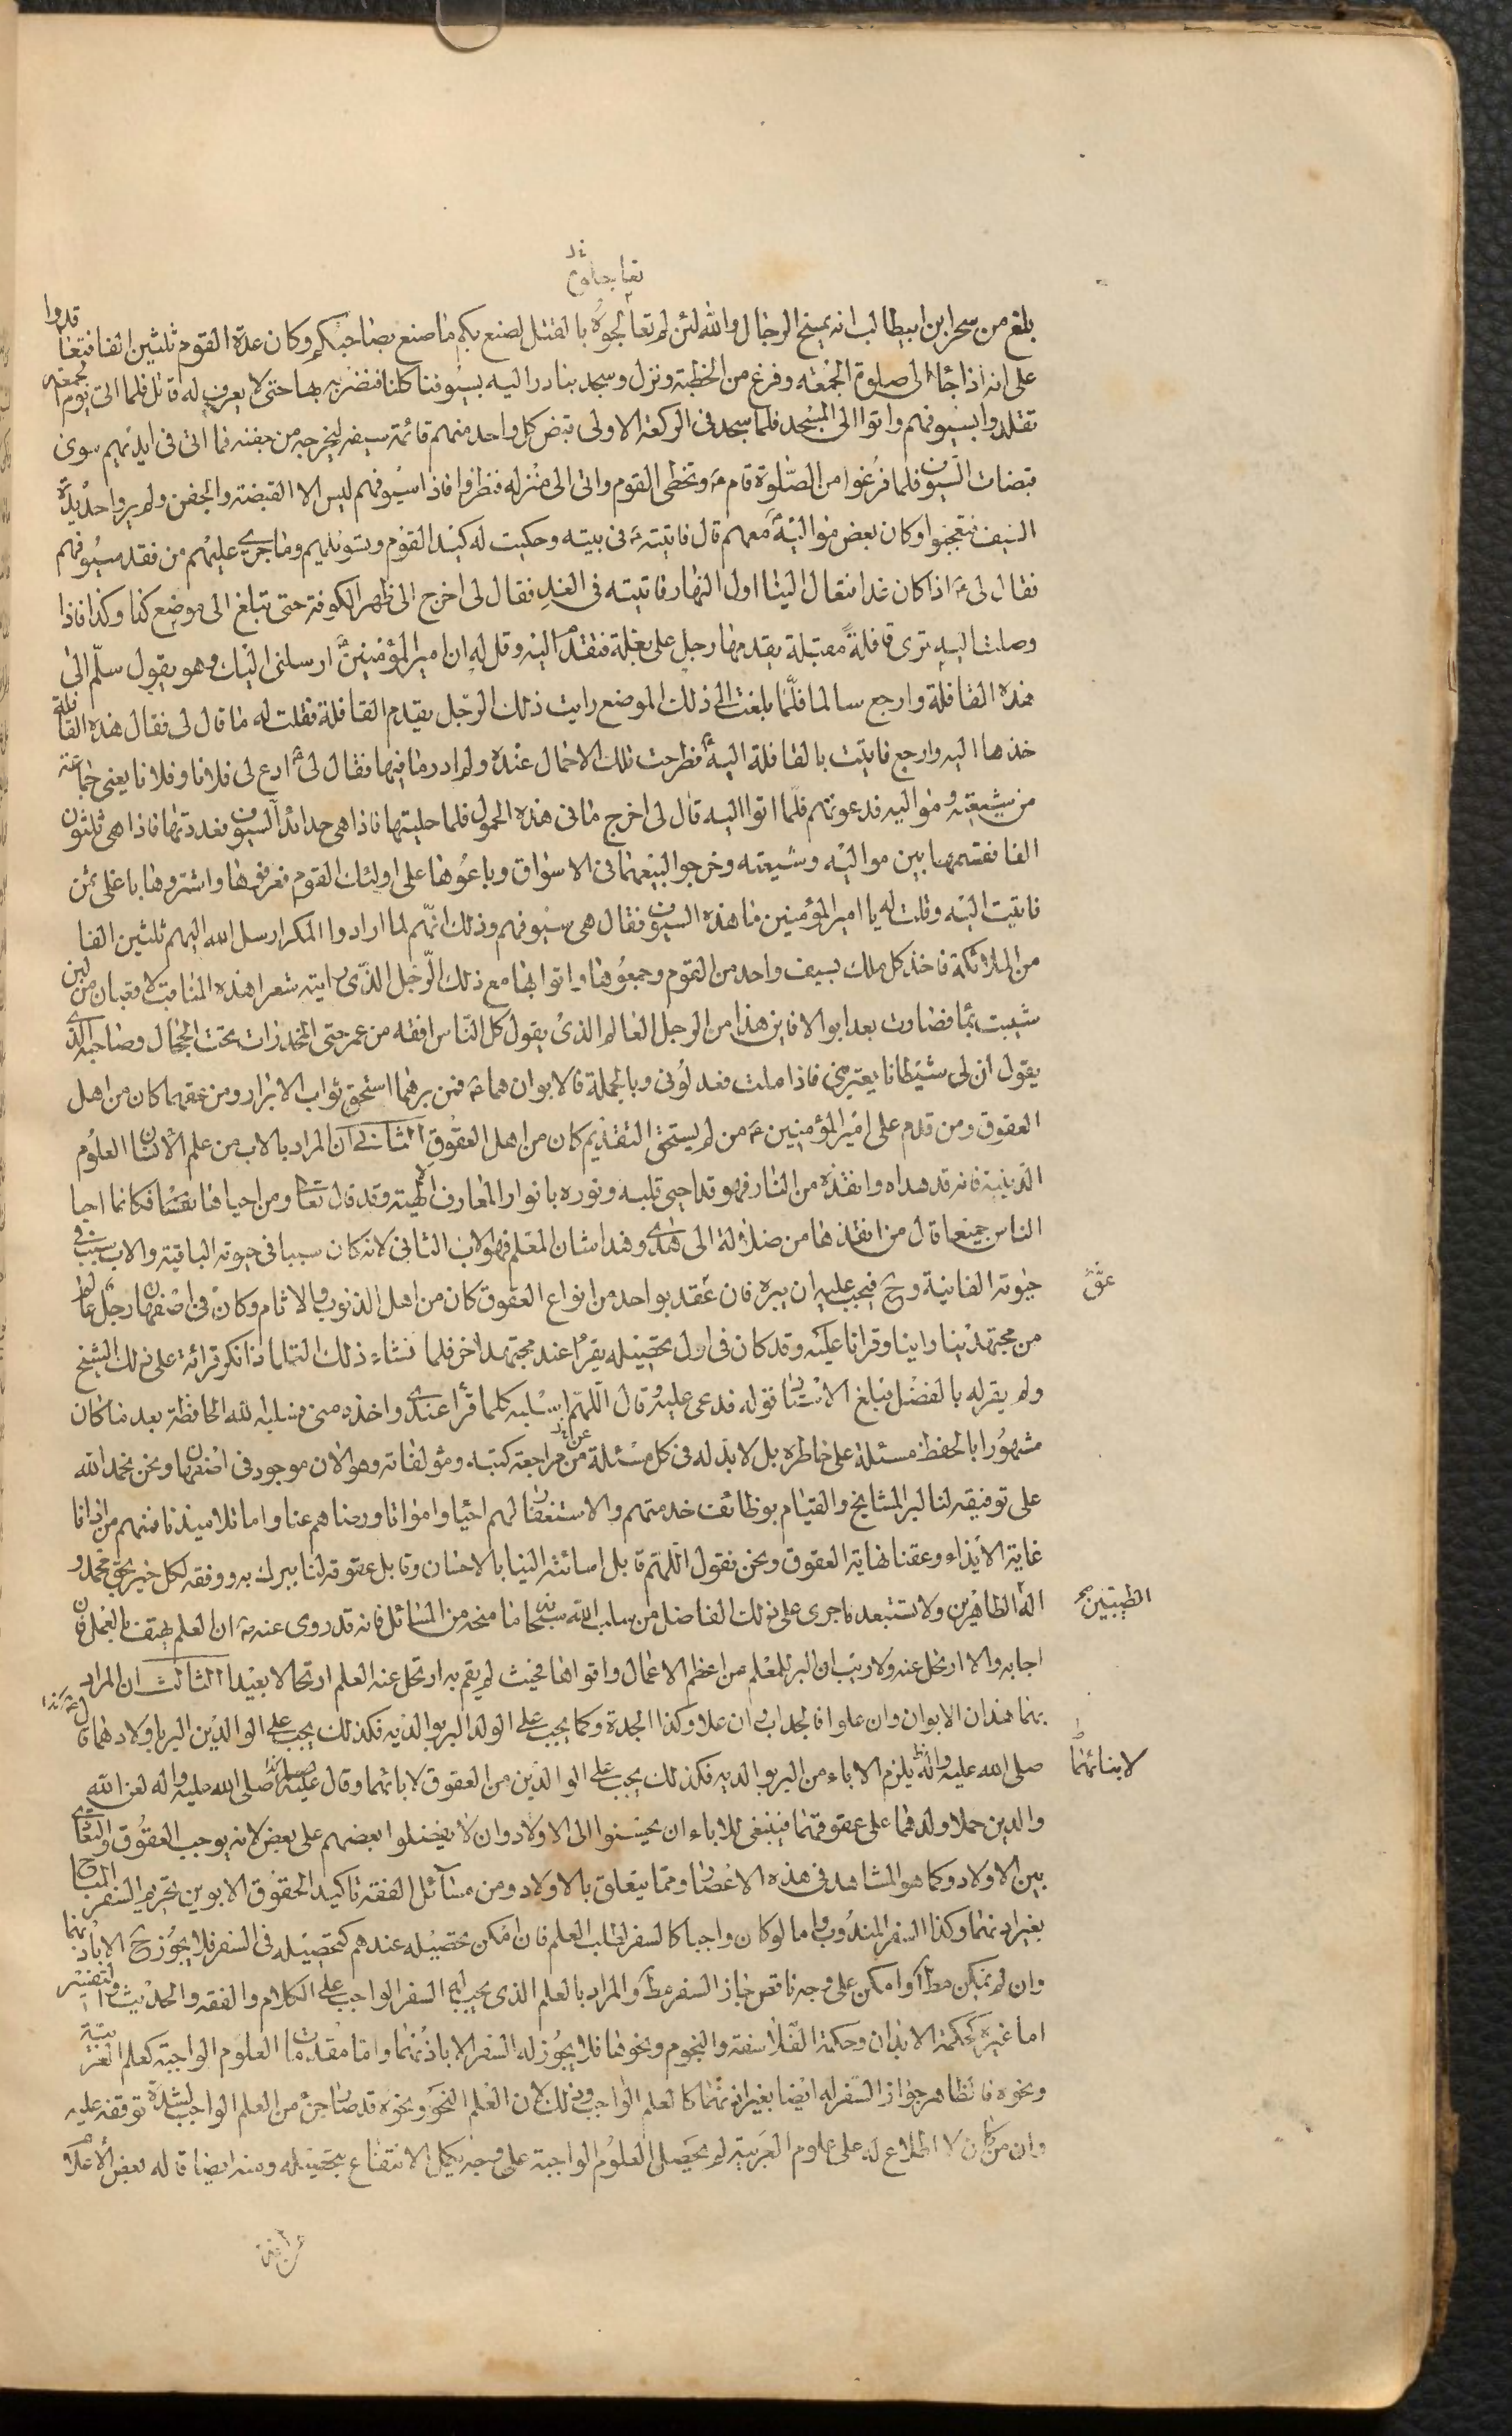 بلغ من سحر ابن ابيطالب انه يمسخ الرجال والله لئن لم تعالجوه بالقتل لصنع بكم ما صنع بصاحبكم وكان عدة القوم ثلثين الفا فتعاقدوا
على انه اذا جاء الى صلوة الجمعه وفرغ من الخطبة ونزل وسجد بنادر اليه بسيوفنا كلنا فنضربه بها حتى لا يعرف له قاتل فلما اتى يوم الجمعه
تقلدوا بسيوفهم واتوا الى المسجد فلما سجد فى الركعة الاولى قبض كل واحد منهم قائمة سيفه ليخرجه من جفنه فما اتى فى ايديهم سوى
قبضات السيوف فلما فرغوا من الصلوة قام ع وتخطى القوم واتى الى منزله فنظروا فاذا سيوفهم ليس الا القبضة والجفن ولم يروا حديدة
السيف فتعجبوا وكان بعض مواليه ع معهم قال فاتيته ع فى بيته وحكيت له كيد القوم وتسويلهم وما جرى عليهم من فقد سيوفهم
فقال لى ع اذا كان غدا فتعال الينا اول النهار فاتيته فى الغد فقال لى اخرج الى ظهر الكوفة حتى تبلغ الى موضع كذا وكذا فاذا
وصلت اليه ترى قافلة مقبلة يقدمها رجل على بغلة فتقدم اليه وقل له ان امير المؤمنين ع ارسلنى اليك وهو يقول سلم الى
هذه القافلة وارجع سالما فلما بلغت الى ذلك الموضع رايت ذلك الرجل يقدم القافلة فقلت له ما قال لى فقال هذه القافلة
خذها اليه وارجع فاتيت بالقافلة اليه ع فطرحت تلك الاحمال عنده ولم ادر ما فيها فقال لى ع ادع لى فلانا وفلانا يعنى جماعة
من شيعته ومواليه فدعوتهم فلما اتوا اليه قال لى اخرج ما فى هذه الحمول فلما حليتها فاذا هى حدائد السيوف فعددتها فاذا هى ثلثون
الفا فقسمها بين مواليه وشيعته وخرجوا لبيعها فى الاسواق وباعوها على اولئك القوم فعرفوها واشتروها باغلى ثمن
فاتيت اليه وقلت له يا امير المؤمنين ما هذه السيوف فقال هى سيوفهم وذلك انهم لما ارادوا المكر ارسل الله اليهم ثلثين الفا
من الملائكة فاخذ كل ملك بسيف واحد من القوم وجمعوها واتوا بها مع ذلك الرجل الذى رايته شعر هذه المناقب لا قعبان من لبن
شيبت بما فصارت بعد ابوالا فاين هذا من الرجل العالم الذى يقول كل الناس افقه من عمر حتى المخدرات تحت الحجال وصاحبه الذى
يقول ان لى شيطانا يعترينى فاذا ملت فعدلونى وبالجملة فالابوان هما ع فمن برهما استحق ثواب الابرار ومن عقهما كان من اهل
العقوق ومن قدم على امير المؤمنين ع من لم يستحق التقديم كان من اهل العقوق الثانى ان المراد بالاب من علم الانسان العلوم
الدينية فانه قد هداه وانقذه من النار فهو قد احيى قلبه ونوره بانوار المعارف الالهية وقد قال تعا ومن احياها نفسا فكانما احيا
الناس جميعا قال من انقذها من ضلالة الى هدى وهذا شان المعلم فهو الاب الثانى لانه كان سببا فى حيوته الباقية والاب سبب فى
حيوته الفانية وح فيجب عليه ان يبره فان عقه بواحد من انواع العقوق كان من اهل الذنوب والاثام وكان فى اصفهان رجل عالم
عقه
من مجتهدينا راينا وقرانا عليه وقد كان فى اول تحصيله يقرأ عند مجتهد اخر فلما نشاء ذلك التلماذ انكر قرائته على ذلك الشيخ
ولم يقر له بالفضل فبلغ الاستاد قوله فدعى عليه وقال اللهم اسلبه كلما قرأ عندى واخذه منى فسلبه الله الحافظة بعد ما كان
مشهورا بالحفظ مسئلة على خاطره بل لا بد له فى كل مسئلة من مراجعة كتبه ومؤلفاته وهو الان موجود فى اصفهان ونحن نحمد الله
على توفيقه لنا لبر المشايخ والقيام بوظائف خدمتهم والاستغفار لهم احياء وامواتا ورضاهم عنا واما تلاميذنا فمنهم من اذانا
غاية الايذاء وعقنا نهاية العقوق ونحن نقول اللهم قابل اسائته الينا بالاحسان وقابل عقوقه لنا ببرك به ووفقه لكل خير بحق محمد و
اله الطاهرين ولا تستبعد ما جرى على ذلك الفاضل من سلب الله سبحانه ما منحه من المسائل فانه قد روى عنه ع ان العلم يهتف بالعمل فان
الطيبين
اجابه والا ارتحل عنه ولا ريب ان البر للمعلم من اعظم الاعمال واقواها فحيث لم يقم به ارتحل عنه العلم ارتحالا بعيدا الثالث ان المراد
بهما هذان الابوان وان علوا فالجد اب وان علا وكذا الجدة وكما يجب على الولد البر بوالديه فكذلك يجب على الوالدين البر باولادهما قال
صلى الله عليه واله يلزم الاباء من البر بوالديه فكذلك يجب على الوالدين من العقوق لابائهما وقال صلى الله عليه واله لعن الله
لابنائهما
والدين حملا ولدهما على عقوقهما فينبغى للاباء ان يحسنوا الى الاولاد وان لا يفضلوا بعضهم على بعض لانه يوجب العقوق والتعادى
بين الاولاد وكما هو المشاهد فى هذه الاعصار ومما يتعلق بالاولاد ومن مسائل الفقه تاكيد الحقوق الابوين تحريم السفر المباح
بغير اذنهما وكذا السفر المندوب واما لو كان واجبا كالسفر لطلب العلم فان امكن تحصيله عندهم كتحصيله فى السفر فلا يجوز ح الا باذنهما
وان لم يمكن مطا او امكن على وجه ناقص جاز السفر مطا والمراد بالعلم الذى يجب له السفر الواجب على الكلام والفقه والحديث والتفسير
اما غيره كحكمة الابدان وحكمة الفلاسفة والنجوم ونحوها فلا يجوز له السفر الا باذنهما واما مقدمات العلوم الواجبة كعلم العربية
ونحوه فالظاهر جواز السفر له ايضا بغير اذنهما كالعلم الواجب وذلك لان العلم النحو ونحوه قد صار جزء من العلم الواجب لشدة توقفه عليه
وان من كان لا اطلاع له على علوم العربية لم يحصل العلوم الواجبة على وجه يكمل الانتفاع بتحصيله ومنه ايضا قاله بعض الاعلام